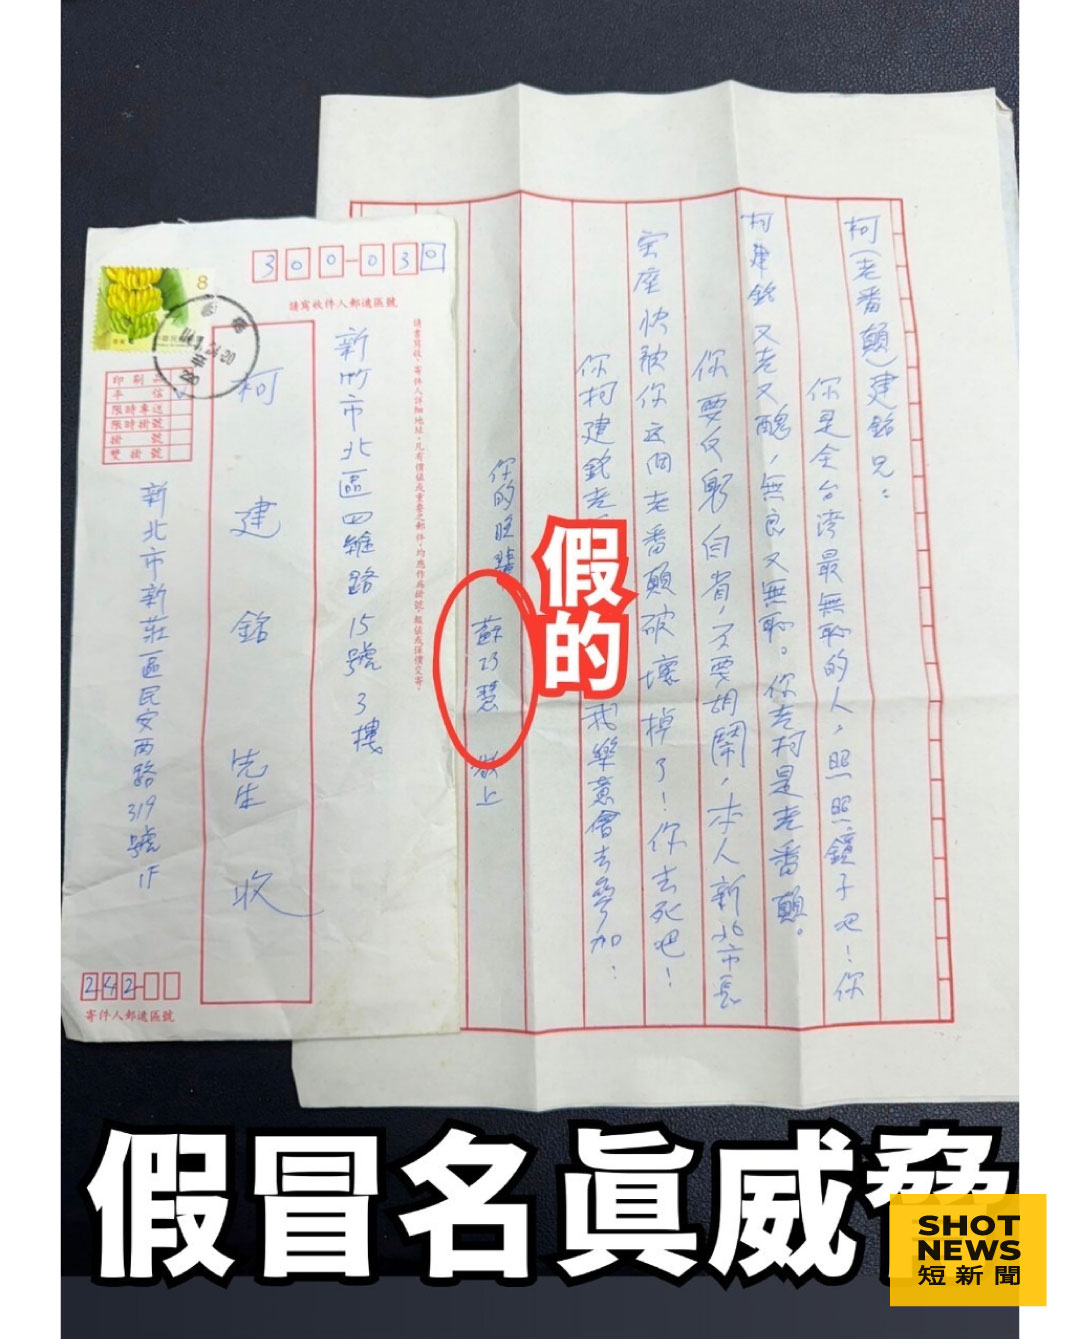 柯(老番顛)建銘兄:
你是全台湾最無恥的人,照照鏡子吧!你
柯建銘又老又醜,無良又無恥。你老柯是老番顛。
你要反躬自省,不要胡鬧,本人新北市長
宝座快被你这個老番顛破壞掉了!你去死吧!
你柯建銘老
我樂意會去參加:
你的晚輩 蘇巧慧 敬上
假的
300-030
請寫收件人郵遞區號
8
新竹市北區四維路15號3樓
柯建銘 先生 收
印刷品
平信
限時專送
限時掛號
掛號
雙掛號
新北市新莊區民安西路319號1F
242-
寄件人郵遞區號
假冒名真威脅
SHOT
NEWS
短新聞